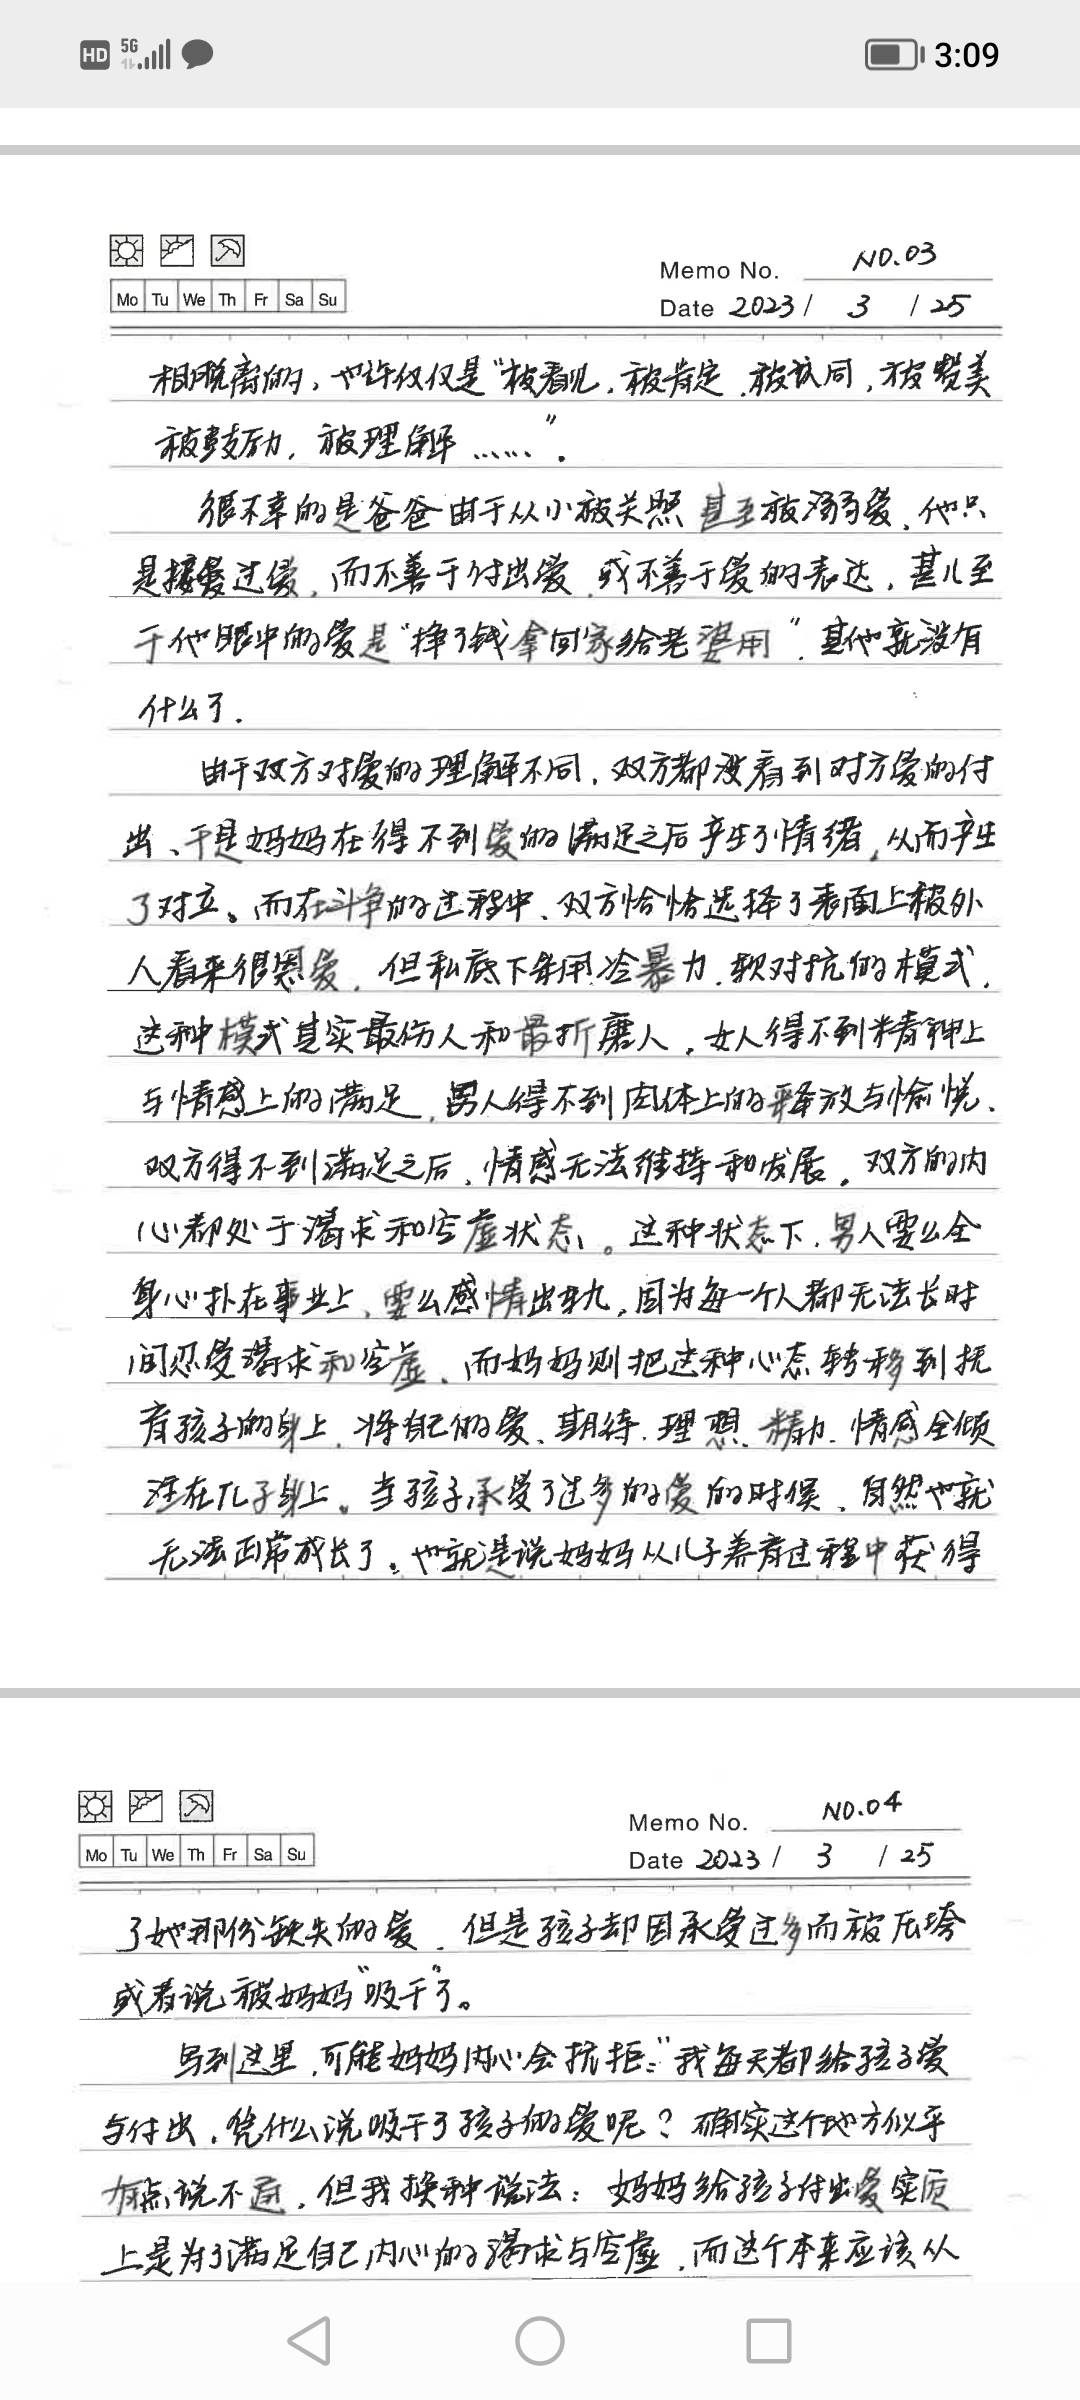 HD 5G 3:09
Memo No. NO.03
Mo Tu We Th Fr Sa Su
Date 2023 / 3 / 25
相脱离的，也许仅仅是“被看见，被肯定，被认同，被赞美
被鼓励，被理解……”。
很不幸的是爸爸由于从小被关照甚至被溺爱，他只
是接受过爱，而不善于付出爱，或不善于爱的表达，甚儿至
于他眼中的爱是“挣了钱拿回家给老婆用”，其他就没有
什么了.
由于双方对爱的理解不同，双方都没看到对方爱的付
出、于是妈妈在得不到爱的满足之后产生了情绪，从而产生
了对立。而在斗争的过程中、双方恰恰选择了表面上被外
人看来很恩爱，但私底下采用冷暴力，软对抗的模式，
这种模式其实最伤人和最折磨人，女人得不到精神上
与情感上的满足，男人得不到肉体上的释放与愉悦、
双方得不到满足之后，情感无法维持和发展。双方的内
心都处于渴求和空虚状态。这种状态下，男人要么全
身心扑在事业上、要么感情出轨，因为每一个人都无法长时
间忍受渴求和空虚、而妈妈则把这种心态转移到抚
育孩子的身上，将自己的爱、期待、理想、精力、情感全倾
注在儿子身上。当孩子承受了过多的爱的时候、自然也就
无法正常成长了。也就是说妈妈从儿子养育过程中获得
Memo No. NO.04
Mo Tu We Th Fr Sa Su
Date 2023 / 3 / 25
了她那份缺失的爱，但是孩子却因承受过多而被压垮
或者说被妈妈“吸干”了。
写到这里，可能妈妈内心会抗拒：“我每天都给孩子爱
与付出，凭什么说吸干了孩子的爱呢？确实这个地方似乎
有点说不通，但我换种说法：妈妈给孩子付出爱实质
上是为了满足自己内心的渴求与空虚，而这个本来应该从